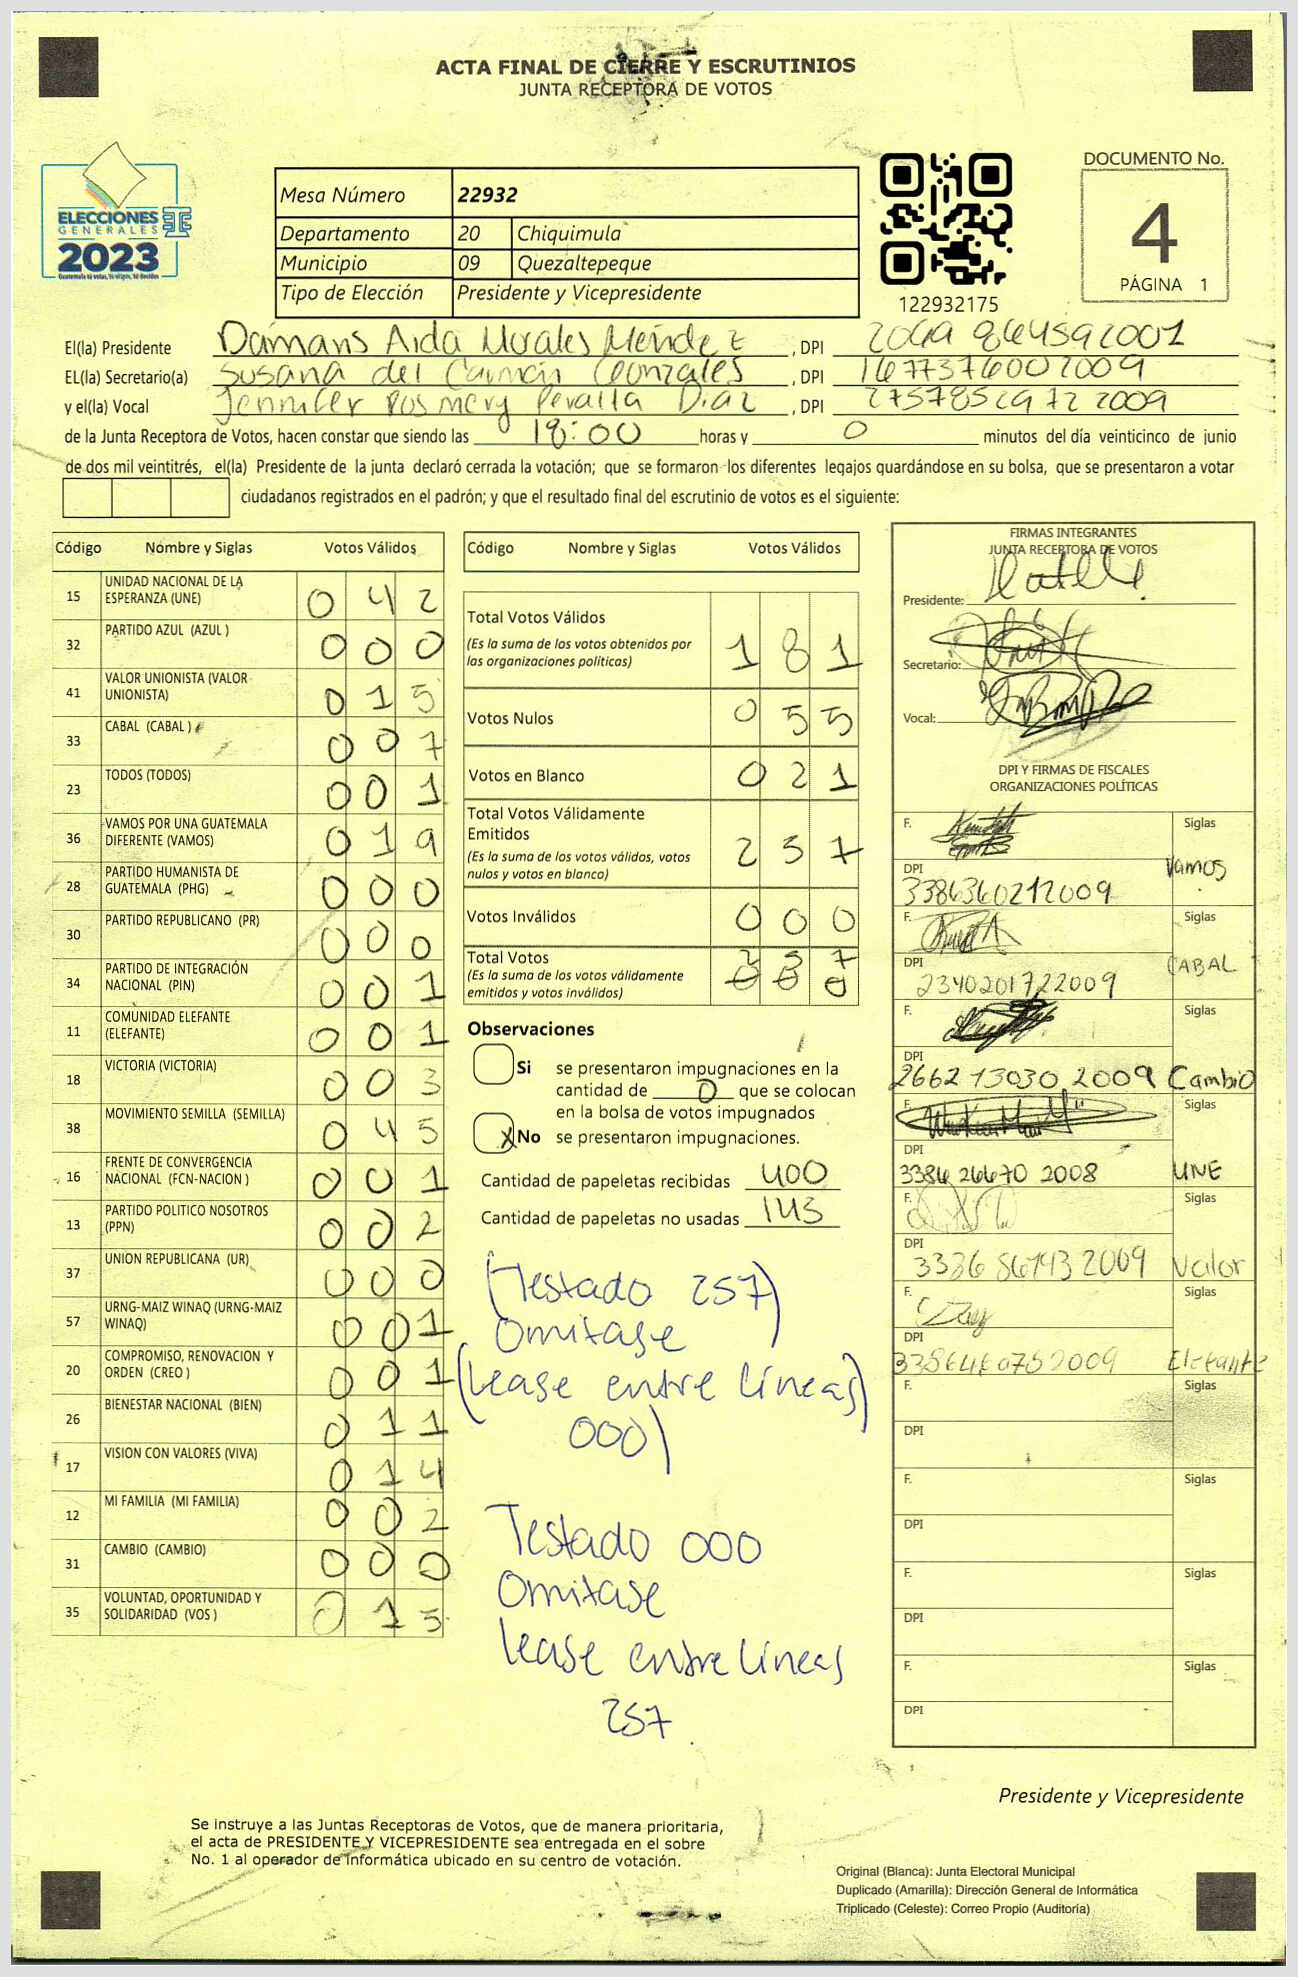 ACTA FINAL DE CIERRE Y ESCRUTINIOS
JUNTA RECEPTORA DE VOTOS
ELECCIONES
GENERALES
2023
Mesa Número 22932
Departamento 20 Chiquimula
Municipio 09 Quezaltepeque
Tipo de Elección Presidente y Vicepresidente
122932175
DOCUMENTO No.
4
PÁGINA 1
El(la) Presidente Damaris Aida Morales Méndez , DPI
EL(la) Secretario(a) Susana del Carmen Gonzales , DPI 1677376002009
y el(la) Vocal Jennifer Rosmery Peralta Diaz , DPI 2757852972 2009
de la Junta Receptora de Votos, hacen constar que siendo las 18:00 horas y 0 minutos del día veinticinco de junio
de dos mil veintitrés, el(la) Presidente de la junta declaró cerrada la votación; que se formaron los diferentes legajos guardándose en su bolsa, que se presentaron a votar
ciudadanos registrados en el padrón; y que el resultado final del escrutinio de votos es el siguiente:
Código Nombre y Siglas Votos Válidos
15 UNIDAD NACIONAL DE LA ESPERANZA (UNE) 0 4 2
32 PARTIDO AZUL (AZUL ) 0 0 0
41 VALOR UNIONISTA (VALOR UNIONISTA) 0 1 5
33 CABAL (CABAL ) 0 0 7
23 TODOS (TODOS) 0 0 1
36 VAMOS POR UNA GUATEMALA DIFERENTE (VAMOS) 0 1 9
28 PARTIDO HUMANISTA DE GUATEMALA (PHG) 0 0 0
30 PARTIDO REPUBLICANO (PR) 0 0 0
34 PARTIDO DE INTEGRACIÓN NACIONAL (PIN) 0 0 1
11 COMUNIDAD ELEFANTE (ELEFANTE) 0 0 1
18 VICTORIA (VICTORIA) 0 0 3
38 MOVIMIENTO SEMILLA (SEMILLA) 0 4 5
16 FRENTE DE CONVERGENCIA NACIONAL (FCN-NACION ) 0 0 1
13 PARTIDO POLITICO NOSOTROS (PPN) 0 0 2
37 UNION REPUBLICANA (UR) 0 0 0
57 URNG-MAIZ WINAQ (URNG-MAIZ WINAQ) 0 0 1
20 COMPROMISO, RENOVACION Y ORDEN (CREO ) 0 0 1
26 BIENESTAR NACIONAL (BIEN) 0 1 1
17 VISION CON VALORES (VIVA) 0 1 4
12 MI FAMILIA (MI FAMILIA) 0 0 2
31 CAMBIO (CAMBIO) 0 0 0
35 VOLUNTAD, OPORTUNIDAD Y SOLIDARIDAD (VOS ) 0 1 5
Código Nombre y Siglas Votos Válidos
Total Votos Válidos 1 8 1
(Es la suma de los votos obtenidos por
las organizaciones políticas)
Votos Nulos 0 5 5
Votos en Blanco 0 2 1
Total Votos Válidamente
Emitidos 2 5 7
(Es la suma de los votos válidos, votos
nulos y votos en blanco)
Votos Inválidos 0 0 0
Total Votos 2 5 7
(Es la suma de los votos válidamente
emitidos y votos inválidos) 0 0 0
Observaciones
Si se presentaron impugnaciones en la
cantidad de 0 que se colocan
en la bolsa de votos impugnados
X No se presentaron impugnaciones.
Cantidad de papeletas recibidas 400
Cantidad de papeletas no usadas 143
(Testado 257)
Omitase
(Lease entre lineas)
000)
Testado 000
Omitase
Lease entre lineas
257
FIRMAS INTEGRANTES
JUNTA RECEPTORA DE VOTOS
Presidente:
Secretario:
Vocal:
DPI Y FIRMAS DE FISCALES
ORGANIZACIONES POLÍTICAS
F. Siglas
DPI Vamos
3386360212009
F. Siglas
DPI CABAL
2340201722009
F. Siglas
DPI
2662 13030 2009 Cambio
F. Siglas
DPI
3386 26670 2008 UNE
F. Siglas
DPI
Valor
F. Siglas
DPI
Elefante
F. Siglas
DPI
F. Siglas
DPI
F. Siglas
DPI
F. Siglas
DPI
Presidente y Vicepresidente
Se instruye a las Juntas Receptoras de Votos, que de manera prioritaria,
el acta de PRESIDENTE Y VICEPRESIDENTE sea entregada en el sobre
No. 1 al operador de informática ubicado en su centro de votación.
Original (Blanca): Junta Electoral Municipal
Duplicado (Amarilla): Dirección General de Informática
Triplicado (Celeste): Correo Propio (Auditoría)